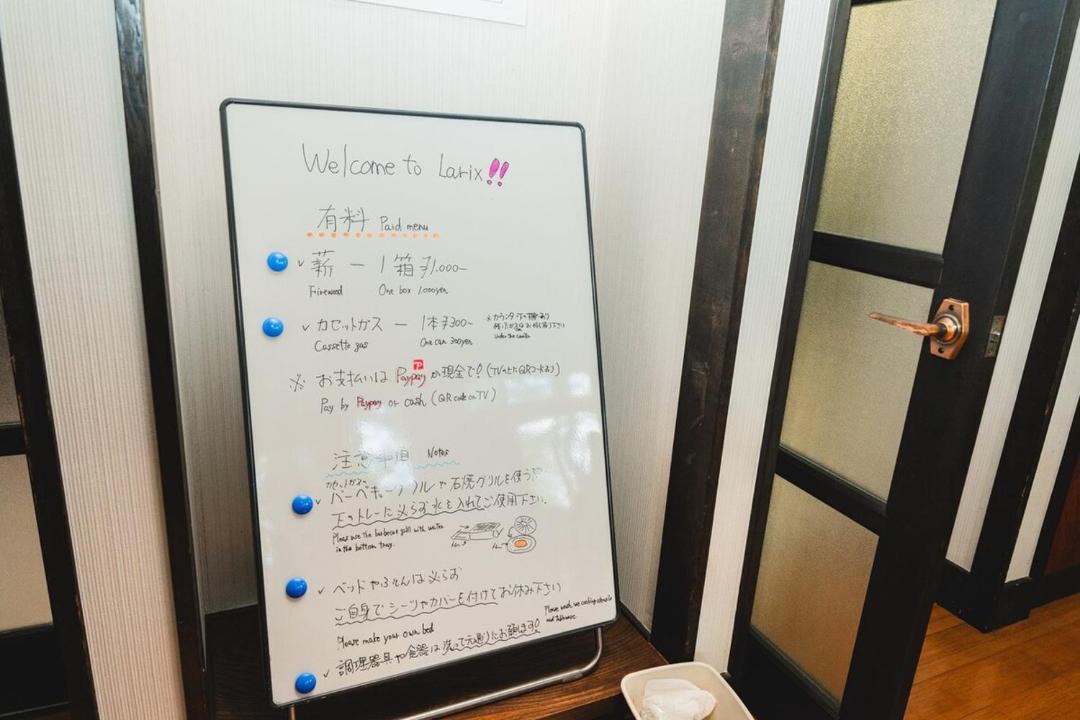 Welcome to Larix!!
有料 Paid menu
✓ 薪 ー 1箱 ¥1,000-
Firewood One box 1,000yen
✓ カセットガス ー 1本 ¥300-
Cassette gas One can 300yen
※カウンター下の棚
under the
※ お支払いは Paypay か現金で! (TVの下にQRコードあり)
Pay by Paypay or cash (QR code on TV)
注意事項 Notes
カセットガスの
✓ バーベキューグリルや石焼グリルを使う際
下のトレーに必らず水を入れてご使用下さい。
Please use the barbecue grill with water
in the bottom tray.
✓ ベッドやふとんは必らず
ご自身でシーツやカバーを付けてお休み下さい
Please make your own bed
Please wash, we cooking utensils
and tableware.
✓ 調理器具や食器は洗って元の所にお願います!